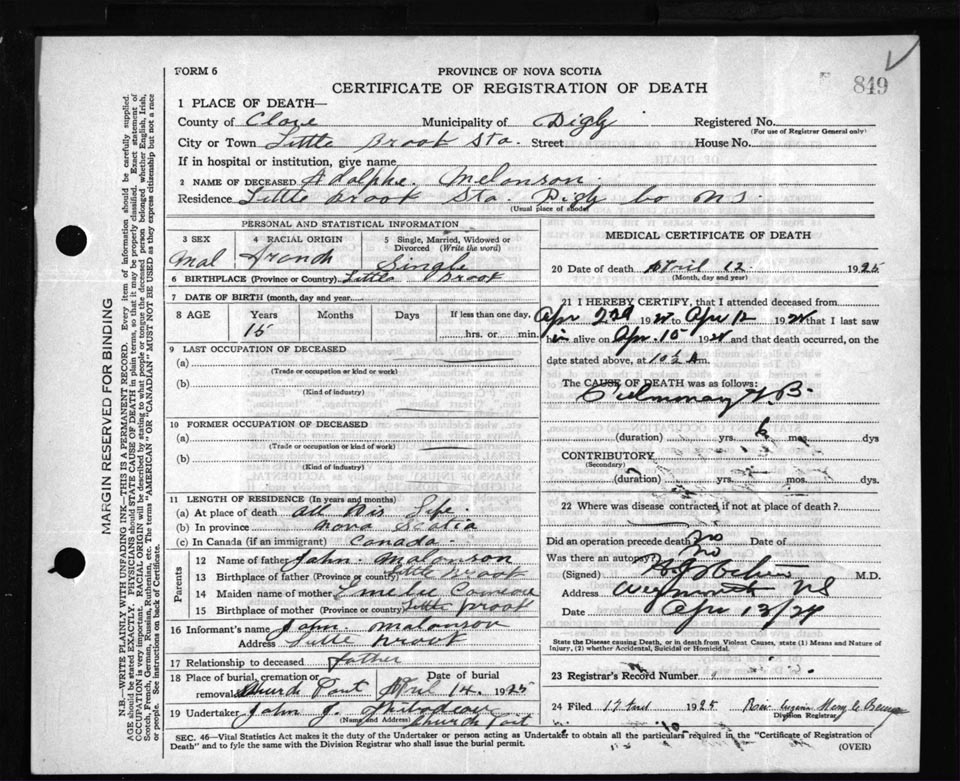 FORM 6
PROVINCE OF NOVA SCOTIA
CERTIFICATE OF REGISTRATION OF DEATH
849
1 PLACE OF DEATH—
County of Clare Municipality of Digby Registered No.
(For use of Registrar General only)
City or Town Little Brook Sta. Street House No.
If in hospital or institution, give name
2 NAME OF DECEASED Adolphe Melonson
Residence Little Brook Sta. Digby co N S.
(Usual place of abode)
PERSONAL AND STATISTICAL INFORMATION
3 SEX 4 RACIAL ORIGIN 5 Single, Married, Widowed or Divorced (Write the word)
Mal Single
6 BIRTHPLACE (Province or Country) Little Brook
7 DATE OF BIRTH (month, day and year)
8 AGE Years Months Days If less than one day,
15 hrs. or min.
9 LAST OCCUPATION OF DECEASED
(a)
(Trade or occupation or kind or work)
(b)
(Kind of industry)
10 FORMER OCCUPATION OF DECEASED
(a)
(Trade or occupation or kind of work)
(b)
(Kind of industry)
11 LENGTH OF RESIDENCE (In years and months)
(a) At place of death all His Life.
(b) In province Nova Scotia
(c) In Canada (if an immigrant) Canada.
Parents
12 Name of father John Malonson
13 Birthplace of father (Province or country) Little Brook
14 Maiden name of mother Emelie Comeau
15 Birthplace of mother (Province or country) Little Brook
16 Informant's name John Malonson
Address Little Brook
17 Relationship to deceased father
18 Place of burial, cremation or removal Church Pont Date of burial April 14, 1925
19 Undertaker John J. Thibodeau
(Name and Address) Church Pont
MEDICAL CERTIFICATE OF DEATH
20 Date of death April 12 1925
(Month, day and year)
21 I HEREBY CERTIFY, that I attended deceased from
Apr 2nd 192 to Apr 12 192 that I last saw
him alive on Apr. 10 192 and that death occurred, on the
date stated above, at 10½ A m.
The CAUSE OF DEATH was as follows:
Pulmonary T.B.
(duration) yrs. 6 mos. dys
CONTRIBUTORY
(Secondary)
(duration) yrs. mos. dys.
22 Where was disease contracted, if not at place of death?
Did an operation precede death No Date of
Was there an autopsy No
(Signed) M.D.
Address Weymouth NS
Date Apr 13/24
State the Disease causing Death, or in death from Violent Causes, state (1) Means and Nature of
Injury, (2) whether Accidental, Suicidal or Homicidal.
23 Registrar's Record Number
24 Filed 17 1925
Division Registrar
SEC. 46—Vital Statistics Act makes it the duty of the Undertaker or person acting as Undertaker to obtain all the particulars required in the "Certificate of Registration of
Death" and to fyle the same with the Division Registrar who shall issue the burial permit. (OVER)
MARGIN RESERVED FOR BINDING
N.B.—WRITE PLAINLY WITH UNFADING INK—THIS IS A PERMANENT RECORD. Every item of information should be carefully supplied.
AGE should be stated EXACTLY. PHYSICIANS should STATE CAUSE OF DEATH in plain terms, so that it may be properly classified. Exact statement of
OCCUPATION is very important. RACIAL ORIGIN will be described by stating to what people or tongue the deceased person belonged whether English, Irish,
Scotch, French, German, Russian, Ruthenian, etc. The terms "AMERICAN" or "CANADIAN" MUST NOT BE USED as they express citizenship but not a race
or people. See instructions on back of Certificate.